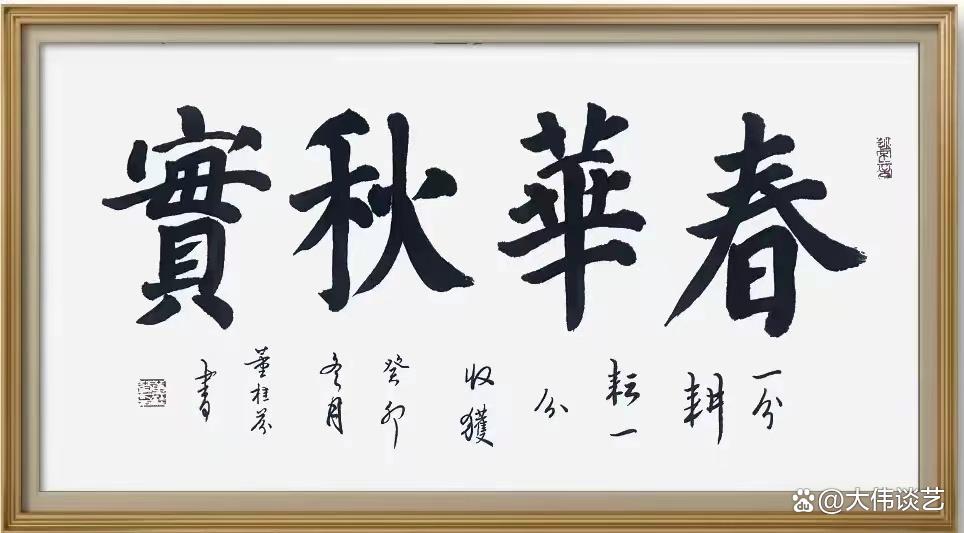 春華秋實
一分
耕
耘一
分
收獲
癸卯
冬月
董桂芬
書
@大伟谈艺